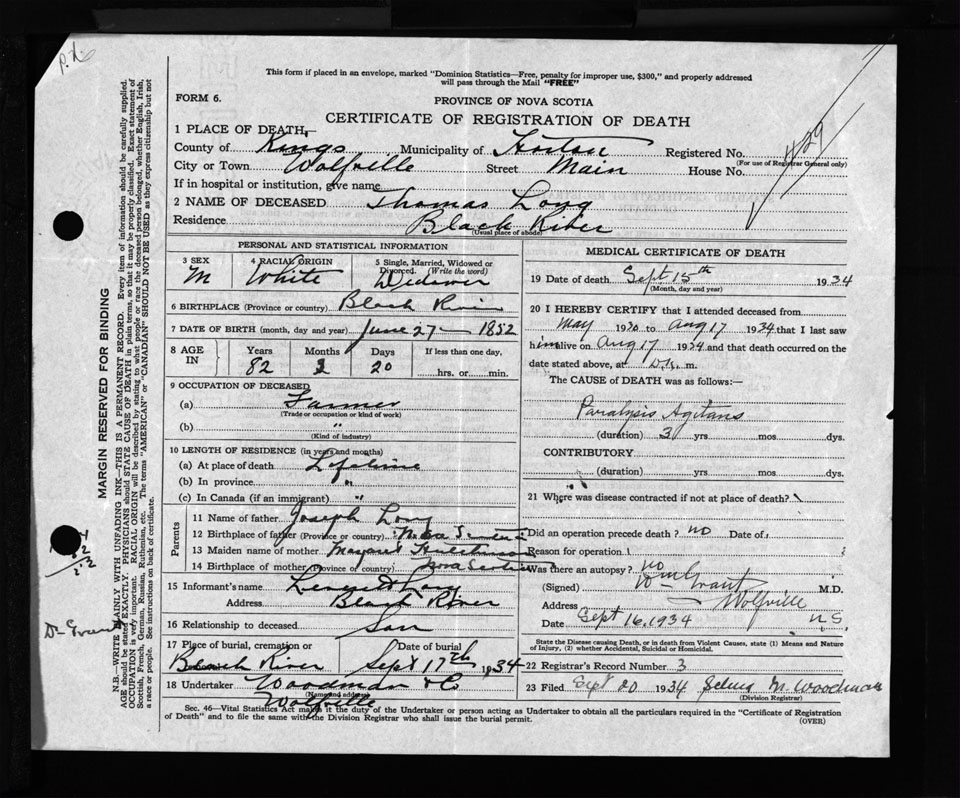 P.L.
This form if placed in an envelope, marked "Dominion Statistics—Free, penalty for improper use, $300," and properly addressed
will pass through the Mail "FREE"
FORM 6.
PROVINCE OF NOVA SCOTIA
CERTIFICATE OF REGISTRATION OF DEATH
1 PLACE OF DEATH,—
County of Kings Municipality of Horton Registered No.
(For use of Registrar General only)
City or Town Wolfville Street Main House No.
If in hospital or institution, give name
2 NAME OF DECEASED Thomas Long
Residence Black River
(Usual place of abode)
PERSONAL AND STATISTICAL INFORMATION
3 SEX 4 RACIAL ORIGIN 5 Single, Married, Widowed or
Divorced. (Write the word)
M White Widower
6 BIRTHPLACE (Province or country) Black River
7 DATE OF BIRTH (month, day and year) June 27 — 1852
8 AGE IN Years Months Days If less than one day,
82 20 hrs. or min.
9 OCCUPATION OF DECEASED
(a) Farmer
(Trade or occupation or kind of work)
(b) "
(Kind of industry)
10 LENGTH OF RESIDENCE (in years and months)
(a) At place of death Lifetime
(b) In province "
(c) In Canada (if an immigrant) "
Parents
11 Name of father Joseph Long
12 Birthplace of father (Province or country) Nova Scotia
13 Maiden name of mother Margaret Hutchinson
14 Birthplace of mother (Province or country) Nova Scotia
15 Informant's name Long
Address Black River
16 Relationship to deceased Son
17 Place of burial, cremation or Date of burial
Black River Sept 17th 1934
18 Undertaker Woodman & Co
(Name and address)
Wolfville
MEDICAL CERTIFICATE OF DEATH
19 Date of death Sept 15th 1934
(Month, day and year)
20 I HEREBY CERTIFY that I attended deceased from
May 1930 to Aug 17 1934 that I last saw
him alive on Aug 17 1934 and that death occurred on the
date stated above, at m.
The CAUSE of DEATH was as follows:—
Paralysis Agitans
(duration) 3 yrs. mos. dys.
CONTRIBUTORY
(duration) yrs. mos. dys.
21 Where was disease contracted if not at place of death?
Did an operation precede death? no Date of
Reason for operation
Was there an autopsy? no
(Signed) Wm Grant M.D.
Address Wolfville N.S.
Date Sept 16, 1934
State the Disease causing Death, or in death from Violent Causes, state (1) Means and Nature
of Injury, (2) whether Accidental, Suicidal or Homicidal.
22 Registrar's Record Number 3
23 Filed Sept 20 1934 M. Woodman
(Division Registrar)
Sec. 46—Vital Statistics Act makes it the duty of the Undertaker or person acting as Undertaker to obtain all the particulars required in the "Certificate of Registration
of Death" and to file the same with the Division Registrar who shall issue the burial permit.
(OVER)
MARGIN RESERVED FOR BINDING
N.B.—WRITE PLAINLY WITH UNFADING INK—THIS IS A PERMANENT RECORD. Every item of information should be carefully supplied.
AGE should be stated EXACTLY. PHYSICIANS should STATE CAUSE OF DEATH in plain terms, so that it may be properly classified. Exact statement of
OCCUPATION is very important. RACIAL ORIGIN will be described by stating to what people or race the deceased person belonged, whether English, Irish,
Scottish, French, German, Russian, Ruthenian, etc. The terms "AMERICAN" or "CANADIAN" SHOULD NOT BE USED as they express citizenship but not
a race or people. See instructions on back of certificate.
Dr Grant